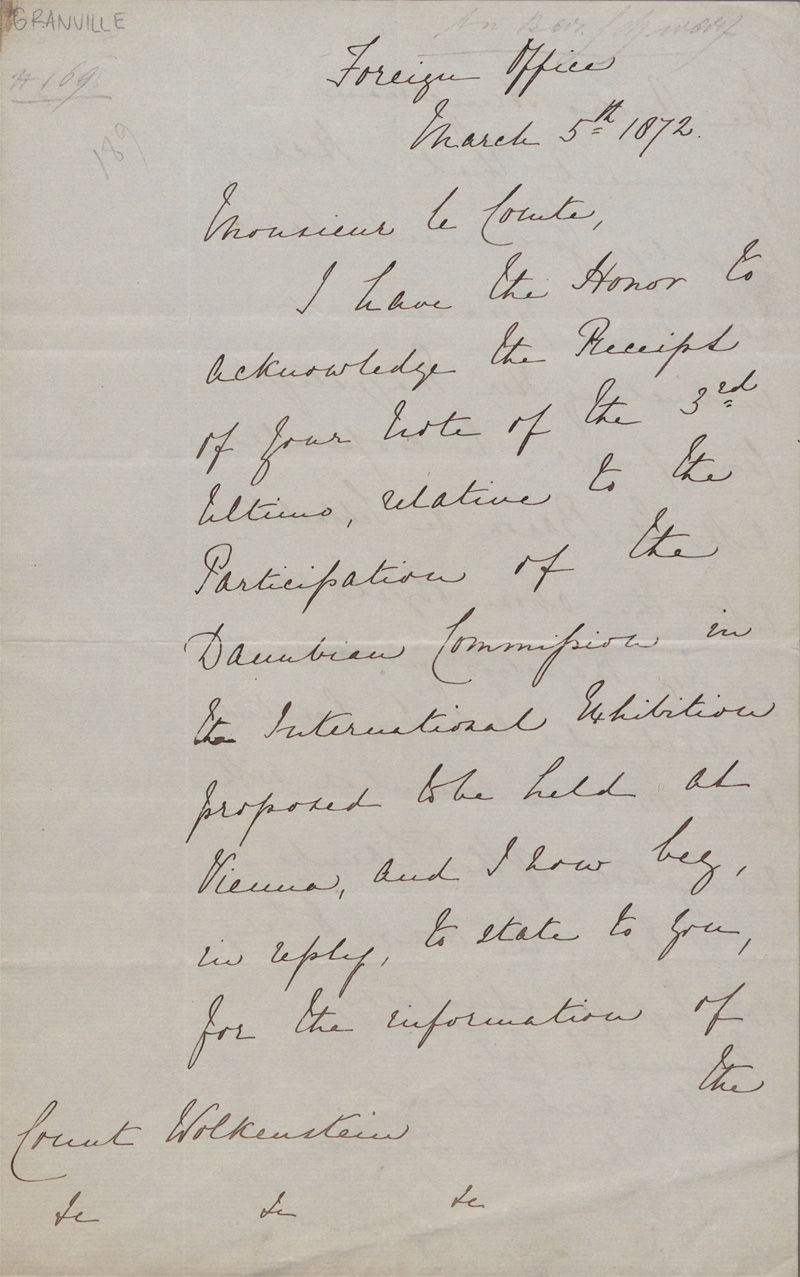 GRANVILLE
169
189
Foreign Office
March 5th 1872.
Monsieur le Comte,
I have the Honor to
acknowledge the Receipt
of your Note of the 3rd
Ultimo, relative to the
Participation of the
Danubian Commission in
the International Exhibition
proposed to be held at
Vienna, and I now beg,
in reply, to state to you,
for the information of
the
Count Wolkenstein
&c &c &c